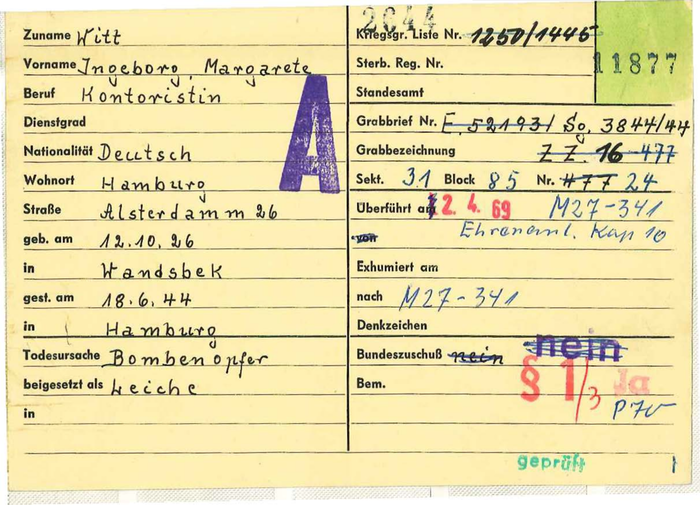 2644
Zuname Witt
Vorname Ingeborg, Margarete
Beruf Kontoristin
Dienstgrad
Nationalität Deutsch
Wohnort Hamburg
Straße Alsterdamm 26
geb. am 12.10.26
in Wandsbek
gest. am 18.6.44
in Hamburg
Todesursache Bombenopfer
beigesetzt als Leiche
in
A
Kriegsgr. Liste Nr. 1250/1445
11877
Sterb. Reg. Nr.
Standesamt
Grabbrief Nr. E. 52193/ Sg. 3844/44
Grabbezeichnung Z Z. 16 477
Sekt. 31 Block 85 Nr. #77 24
Überführt am 2. 4. 69 M27-341
von Ehrenanl. Kap 10
Exhumiert am
nach M27-341
Denkzeichen
Bundeszuschuß nein nein
Bem. § 1/3 Ja
geprüft